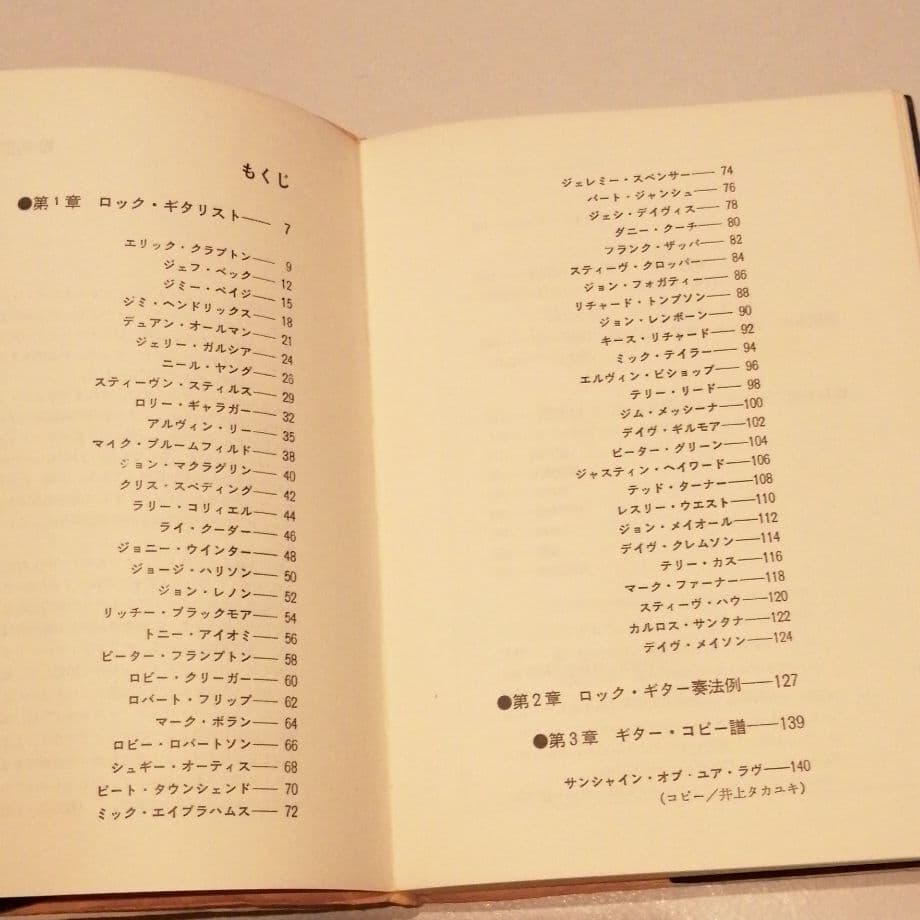 もくじ
●第1章 ロック・ギタリスト── 7
エリック・クラプトン── 9
ジェフ・ベック── 12
ジミー・ペイジ── 15
ジミ・ヘンドリックス── 18
デュアン・オールマン── 21
ジェリー・ガルシア── 24
ニール・ヤング── 26
スティーヴン・スティルス── 29
ロリー・ギャラガー── 32
アルヴィン・リー── 35
マイク・ブルームフィルド── 38
ジョン・マクラグリン── 40
クリス・スペディング── 42
ラリー・コリィエル── 44
ライ・クーダー── 46
ジョニー・ウインター── 48
ジョージ・ハリソン── 50
ジョン・レノン── 52
リッチー・ブラックモア── 54
トニー・アイオミ── 56
ピーター・フランプトン── 58
ロビー・クリーガー── 60
ロバート・フリップ── 62
マーク・ボラン── 64
ロビー・ロバートソン── 66
シュギー・オーティス── 68
ピート・タウンシェンド── 70
ミック・エイブラハムス── 72
ジェレミー・スペンサー── 74
バート・ジャンシュ── 76
ジェシ・デイヴィス── 78
ダニー・クーチ── 80
フランク・ザッパ── 82
スティーヴ・クロッパー── 84
ジョン・フォガティー── 86
リチャード・トンプソン── 88
ジョン・レンボーン── 90
キース・リチャード── 92
ミック・テイラー── 94
エルヴィン・ビショップ── 96
テリー・リード── 98
ジム・メッシーナ──100
デイヴ・ギルモア──102
ピーター・グリーン──104
ジャスティン・ヘイワード──106
テッド・ターナー──108
レスリー・ウエスト──110
ジョン・メイオール──112
デイヴ・クレムソン──114
テリー・カス──116
マーク・ファーナー──118
スティーヴ・ハウ──120
カルロス・サンタナ──122
デイヴ・メイソン──124
●第2章 ロック・ギター奏法例──127
●第3章 ギター・コピー譜──139
サンシャイン・オブ・ユア・ラヴ──140
(コピー/井上タカユキ)